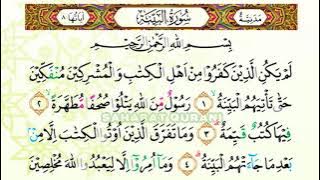 مدنية سُورَةُ الْبَيِّنَة آياتها ٨
بِسْمِ اللهِ الرَّحْمٰنِ الرَّحِيْمِ
لَمْ يَكُنِ الَّذِيْنَ كَفَرُوْا مِنْ اَهْلِ الْكِتٰبِ وَالْمُشْرِكِيْنَ مُنْفَكِّيْنَ
حَتّٰى تَأْتِيَهُمُ الْبَيِّنَةُ ۙ ١ رَسُوْلٌ مِّنَ اللهِ يَتْلُوْا صُحُفًا مُّطَهَّرَةً ۙ ٢
SAHABAT QURANI
فِيْهَا كُتُبٌ قَيِّمَةٌ ۗ ٣ وَمَا تَفَرَّقَ الَّذِيْنَ اُوْتُوا الْكِتٰبَ اِلَّا مِنْۢ
بَعْدِ مَا جَاۤءَتْهُمُ الْبَيِّنَةُ ۗ ٤ وَمَآ اُمِرُوْٓا اِلَّا لِيَعْبُدُوا اللهَ مُخْلِصِيْنَ